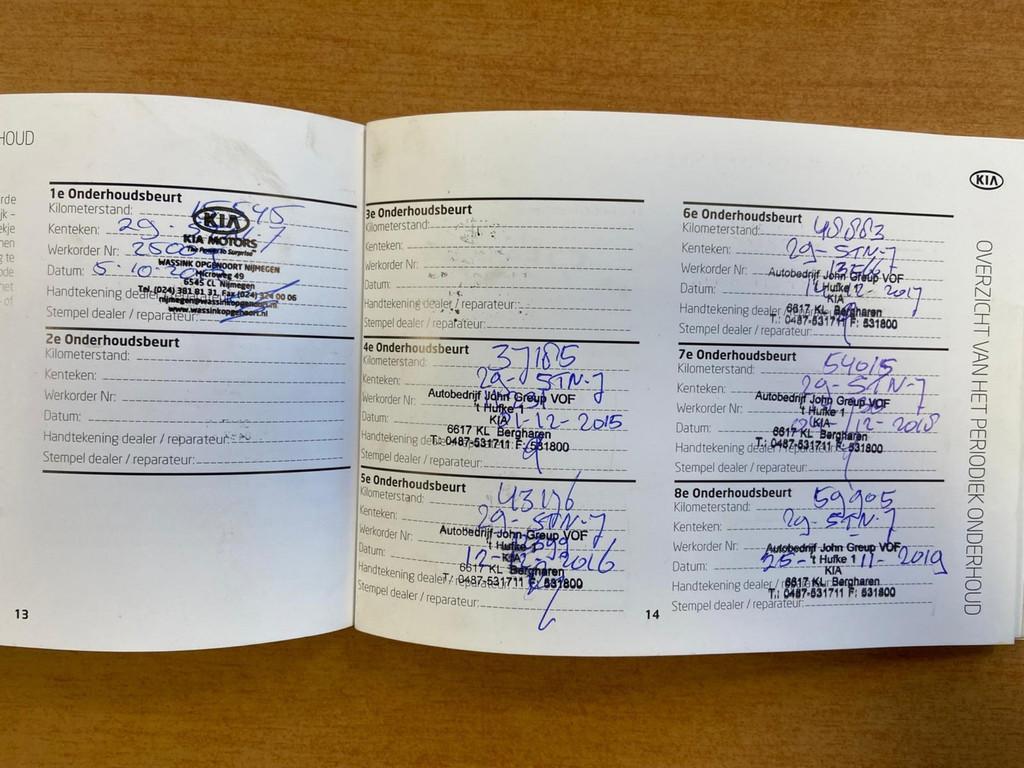 HOUD
rde
jk –
ekje
nen
g te
ode
net
- of
1e Onderhoudsbeurt
Kilometerstand: 15545
Kenteken: 29-
Werkorder Nr:
Datum: 5-10-20
Handtekening dealer / reparateur:
Stempel dealer / reparateur:
KIA
KIA MOTORS
The Power to Surprise
WASSINK OPGENOORT NIJMEGEN
Microweg 49
6545 CL Nijmegen
Tel. (024) 381 81 31, Fax (024) 324 00 06
nijmegen@wassinkopgenoort.nl
www.wassinkopgenoort.nl
2e Onderhoudsbeurt
Kilometerstand:
Kenteken:
Werkorder Nr:
Datum:
Handtekening dealer / reparateur:
Stempel dealer / reparateur:
13
3e Onderhoudsbeurt
Kilometerstand:
Kenteken:
Werkorder Nr:
Datum:
Handtekening dealer / reparateur:
Stempel dealer / reparateur:
4e Onderhoudsbeurt
Kilometerstand: 37185
Kenteken: 29-STN-7
Werkorder Nr:
Datum: 12-2015
Handtekening dealer / reparateur:
Stempel dealer / reparateur:
Autobedrijf John Greup VOF
't Hufke 1
KIA
6617 KL Bergharen
T.: 0487-531711 F: 531800
5e Onderhoudsbeurt
Kilometerstand: 43176
Kenteken: 29-STN-7
Werkorder Nr:
Datum: 2016
Handtekening dealer / reparateur:
Stempel dealer / reparateur:
Autobedrijf John Greup VOF
't Hufke 1
KIA
6617 KL Bergharen
T.: 0487-531711 F: 531800
14
KIA
6e Onderhoudsbeurt
Kilometerstand: 48883
Kenteken: 29-STN-7
Werkorder Nr:
Datum: 12-2017
Handtekening dealer / reparateur:
Stempel dealer / reparateur:
Autobedrijf John Greup VOF
't Hufke 1
KIA
6617 KL Bergharen
T.: 0487-531711 F: 531800
7e Onderhoudsbeurt
Kilometerstand: 54015
Kenteken: 29-STN-7
Werkorder Nr:
Datum: 12-2018
Handtekening dealer / reparateur:
Stempel dealer / reparateur:
Autobedrijf John Greup VOF
't Hufke 1
KIA
6617 KL Bergharen
T.: 0487-531711 F: 531800
8e Onderhoudsbeurt
Kilometerstand: 59905
Kenteken: 29-STN-7
Werkorder Nr:
Datum: 25-11-2019
Handtekening dealer / reparateur:
Stempel dealer / reparateur:
Autobedrijf John Greup VOF
't Hufke 1
KIA
6617 KL Bergharen
T.: 0487-531711 F: 531800
OVERZICHT VAN HET PERIODIEK ONDERHOUD